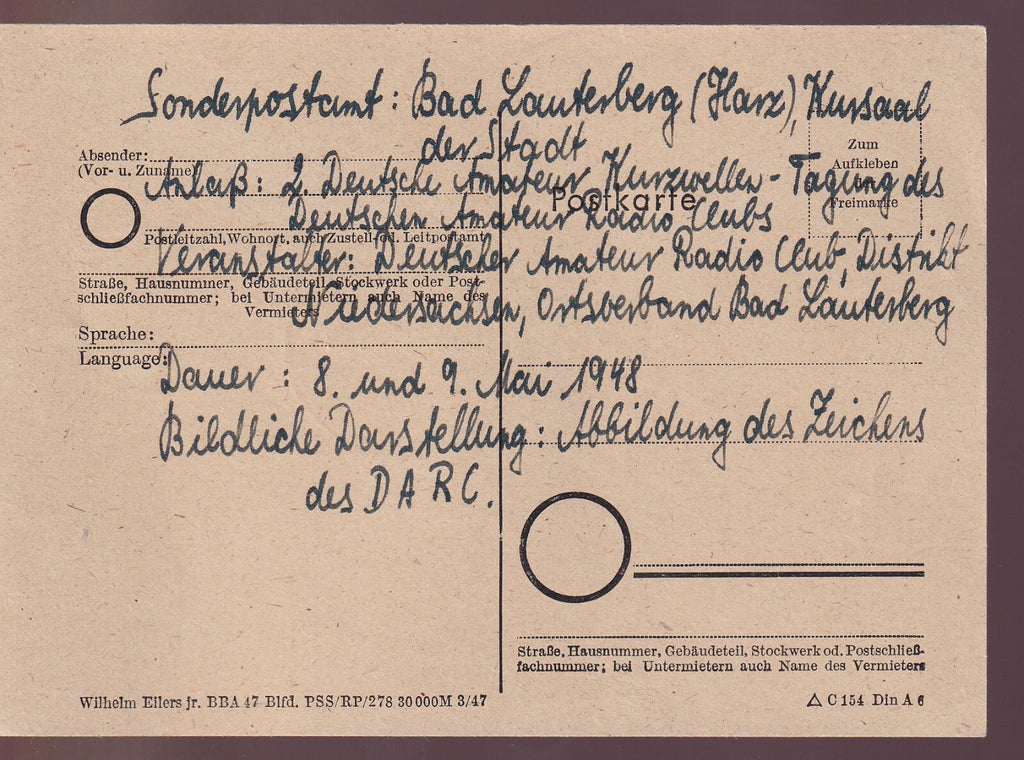 Sonderpostamt: Bad Lauterberg (Harz), Kursaal
der Stadt
Zum
Aufkleben
Freimarke
Absender:
(Vor- u. Zuname)
Anlaß: 2. Deutsche Amateur Kurzwellen-Tagung des
Postkarte
Deutschen Amateur Radio Clubs
Postleitzahl, Wohnort, auch Zustell- od. Leitpostamt
Veranstalter: Deutscher Amateur Radio Club, Distrikt
Straße, Hausnummer, Gebäudeteil, Stockwerk oder Post-
schließfachnummer; bei Untermietern auch Name des
Vermieters
Niedersachsen, Ortsverband Bad Lauterberg
Sprache:
Language:
Dauer: 8. und 9. Mai 1948
Bildliche Darstellung: Abbildung des Zeichens
des DARC.
Straße, Hausnummer, Gebäudeteil, Stockwerk od. Postschließ-
fachnummer; bei Untermietern auch Name des Vermieters
Wilhelm Eilers jr. BBA 47 Blfd. PSS/RP/278 30000M 3/47
C 154 Din A 6